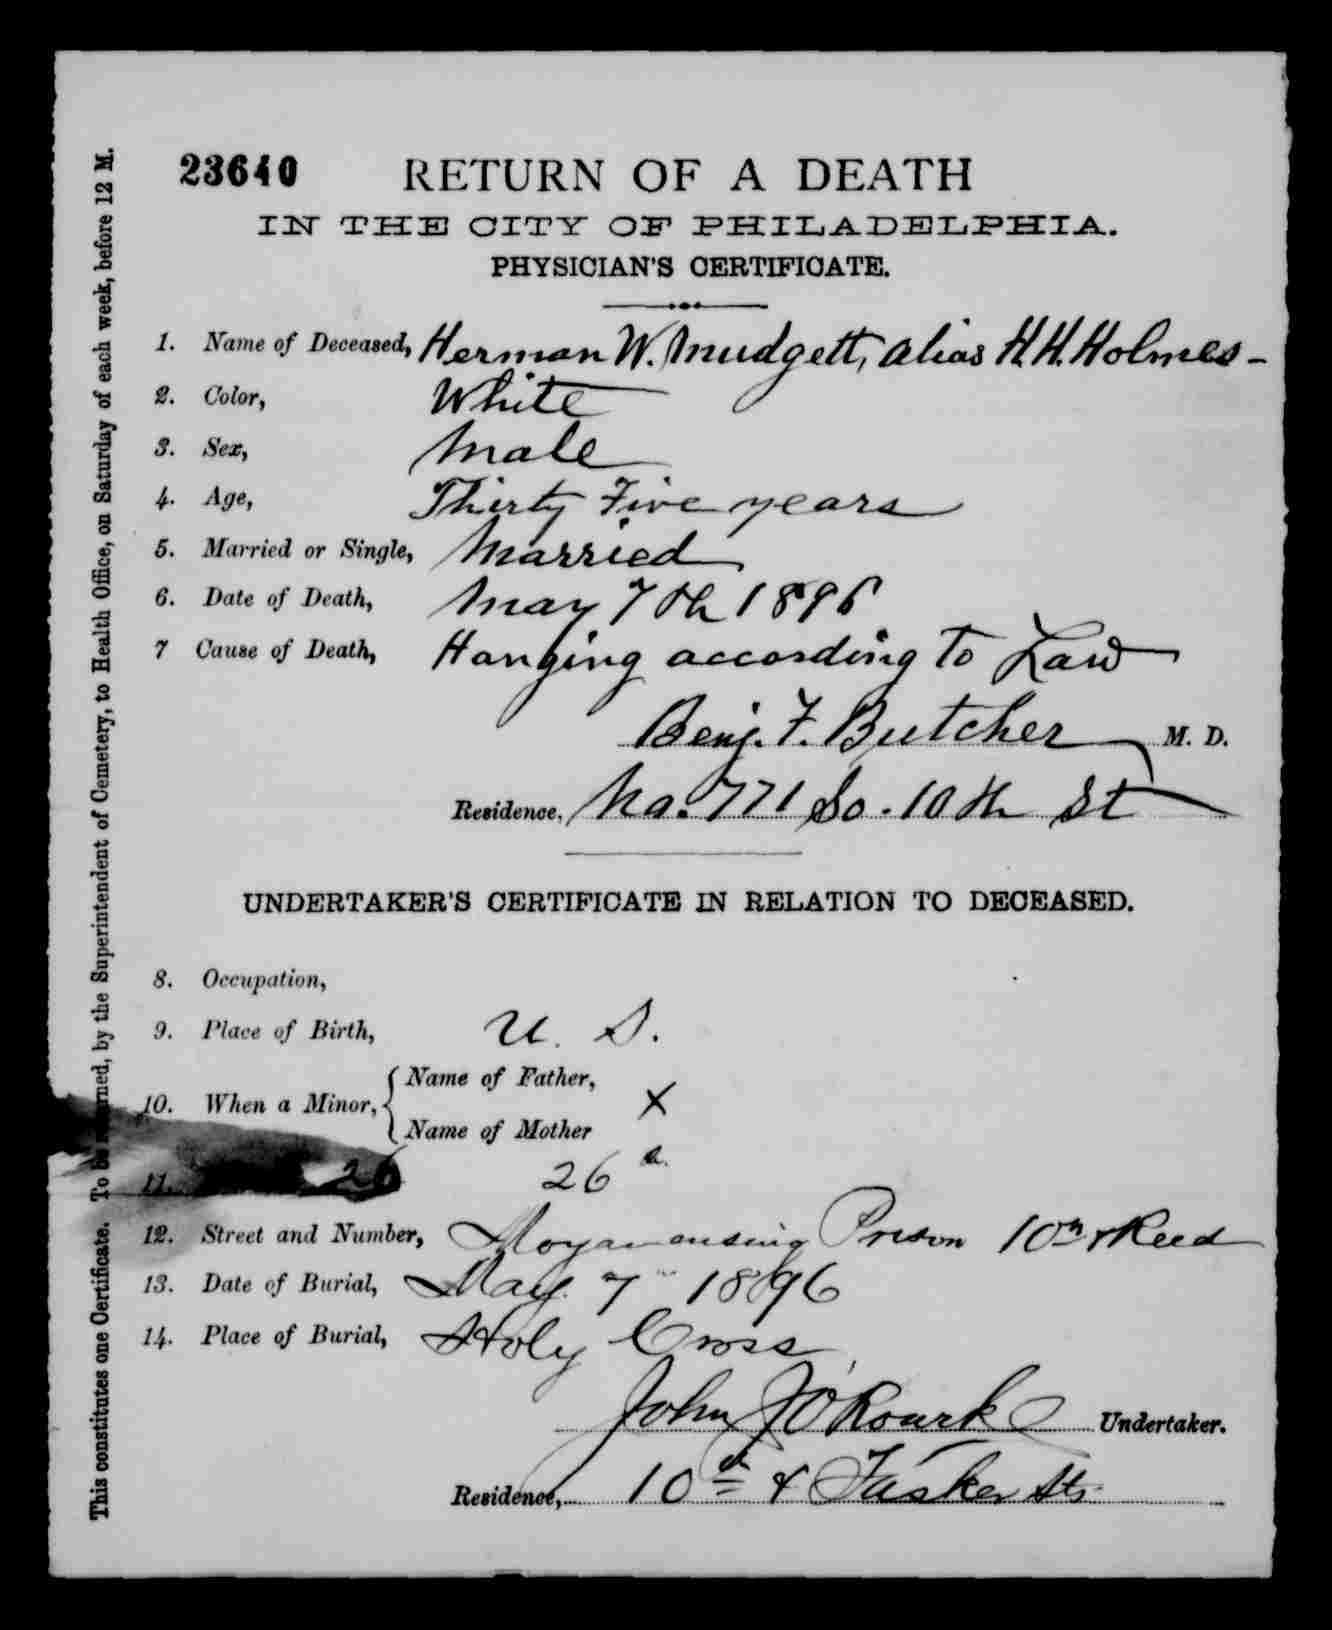 23640 RETURN OF A DEATH
IN THE CITY OF PHILADELPHIA.
PHYSICIAN'S CERTIFICATE.
1. Name of Deceased, Herman W. Mudgett, alias H.H. Holmes -
2. Color, White
3. Sex, Male
4. Age, Thirty Five years
5. Married or Single, Married
6. Date of Death, May 7th 1896
7 Cause of Death, Hanging according to Law
Benj. F. Butcher M. D.
Residence, No. 771 So. 10th St
UNDERTAKER'S CERTIFICATE IN RELATION TO DECEASED.
8. Occupation,
9. Place of Birth, U. S.
10. When a Minor, { Name of Father, X
Name of Mother
11. 26 26
12. Street and Number, Moyamensing Prison 10th & Reed
13. Date of Burial, May 7" 1896
14. Place of Burial, Holy Cross
John J O'Rourke Undertaker.
Residence, 10th & Tasker Sts.
This constitutes one Certificate. To be returned, by the Superintendent of Cemetery, to Health Office, on Saturday of each week, before 12 M.